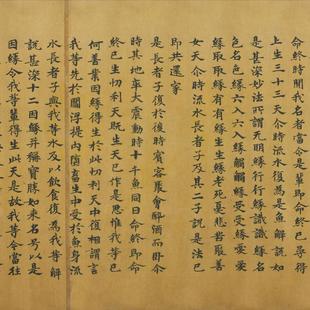 命終時聞我名者當令是輩即命終已尋得
上生三十三天尒時流水復為是魚解說如
是甚深妙法所謂无明緣行行緣識識緣名
色名色緣六入六入緣觸觸緣受受緣愛愛
緣取取緣有有緣生生緣老死憂悲苦惱善
女天尒時流水長者子及其二子說是法已
即共還家
是長者子復於後時賓客聚會醉酒而卧尒
時其地卒大震動時十千魚同日命終即命
終已生忉利天既生天已作是思惟我等已
何善業因緣得生於此忉利天中復相謂言
我等先於閻浮提內墮畜生中受於魚身流
水長者子與我等水及以飲食復為我等解
說甚深十二因緣并稱寶勝如來名号以是
因緣令我等輩得生此天是故我等今當往